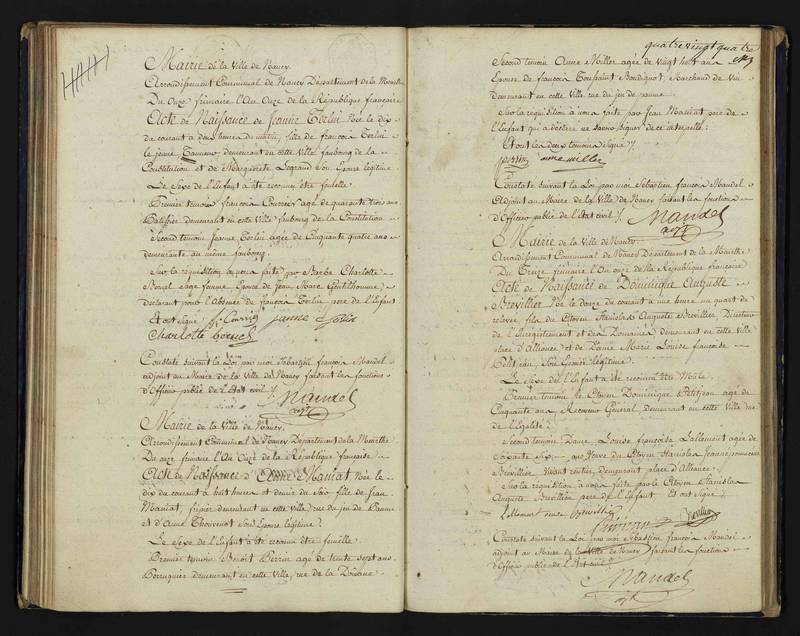 Mairie de la Ville de Nancy.
Arrondissement Communal de Nancy Département de la Meurthe
Du Onze frimaire l'An Onze de la République française
Acte de Naissance de Jeanne Terlin Née le dix
du courant à deux heures du matin, fille de françois Terlin
le jeune, Tanneur, demeurant en cette Ville faubourg de la
Constitution et de Margueritte Legrand son Epouse légitime.
Le Sexe de l'Enfant a été reconnu être femelle.
Premier temoin françois Courrier agé de quarante trois ans
demeurant en cette Ville faubourg de la Constitution.
Second temoin Jeanne Terlin agée de Cinquante quatre ans
demeurante au même faubourg.
Sur la requisition à nous faite par Barbe Charlotte
sage femme Epouse de Jean Marc
déclarant pour l'absence de françois Terlin pere de l'Enfant
Et ont signé
Charlotte
Constaté suivant la Loi par moi Sébastien françois Mandel
adjoint au Maire de la Ville de Nancy faisant les fonctions
d'Officier public de l'Etat civil ./.
Mandel
adjt
Mairie de la Ville de Nancy.
Arrondissement Communal de Nancy Département de la Meurthe
Du onze frimaire l'An Onze de la République française
Acte de Naissance d'Anne Maniat Née le
dix du courant à huit heures et demie du Soir fille de Jean
Maniat, fripier demeurant en cette Ville, rue du jeu de Paume
et d'Anne Thouvenot son Epouse légitime.
Le Sexe de l'Enfant a été reconnu être femelle.
Premier temoin Benoit Perrin agé de trente sept ans
Perruquier demeurant en cette Ville, rue de la Douane
quatre vingt quatre
Second temoin Anne Miller agée de vingt huit ans
Epouse de françois Toussaint Bondignot, Marchand de Vin
demeurant en cette Ville rue du jeu de paume.
Sur la requisition à nous faite par Jean Maniat pere de
l'Enfant qui a déclaré ne savoir signer de ce interpellé.
Et ont les deux temoins signé ./.
perrin anne miller
Constaté suivant la Loi par moi Sébastien françois Mandel
Adjoint au Maire de la Ville de Nancy faisant les fonctions
d'Officier public de l'Etat civil ./.
Mandel
adjt
Mairie de la Ville de Nancy.
Arrondissement Communal de Nancy Département de la Meurthe
Du Treize frimaire l'An onze de la République française
Acte de Naissance de Dominique Auguste
Brevillier Né le douze du courant à une heure un quart de
relevée fils du Citoyen Stanislas Auguste Brevillier, Directeur
de l'Enregistrement et des Domaines demeurant en cette Ville
place d'Alliance et de Dame Marie Louise françoise
son Epouse légitime.
Le Sexe de l'Enfant a été reconnu être Mâle.
Premier temoin le Citoyen Dominique Petitjean agé de
Cinquante ans Receveur Général, demeurant en cette Ville rue
de l'Egalité.
Second temoin Dame Louise françoise Lallement agée de
soixante Six ans Veuve du Citoyen Stanislas
Brevillier vivant rentier, demeurant place d'Alliance.
Sur la requisition à nous faite par le Citoyen Stanislas
Auguste Brevillier pere de l'Enfant, Et ont signé
Lallement veuve Brevillier
Brevillier
Constaté suivant la Loi par moi Sébastien françois Mandel
adjoint au Maire de la Ville de Nancy faisant les fonctions
d'Officier public de l'Etat civil
Mandel
adjt